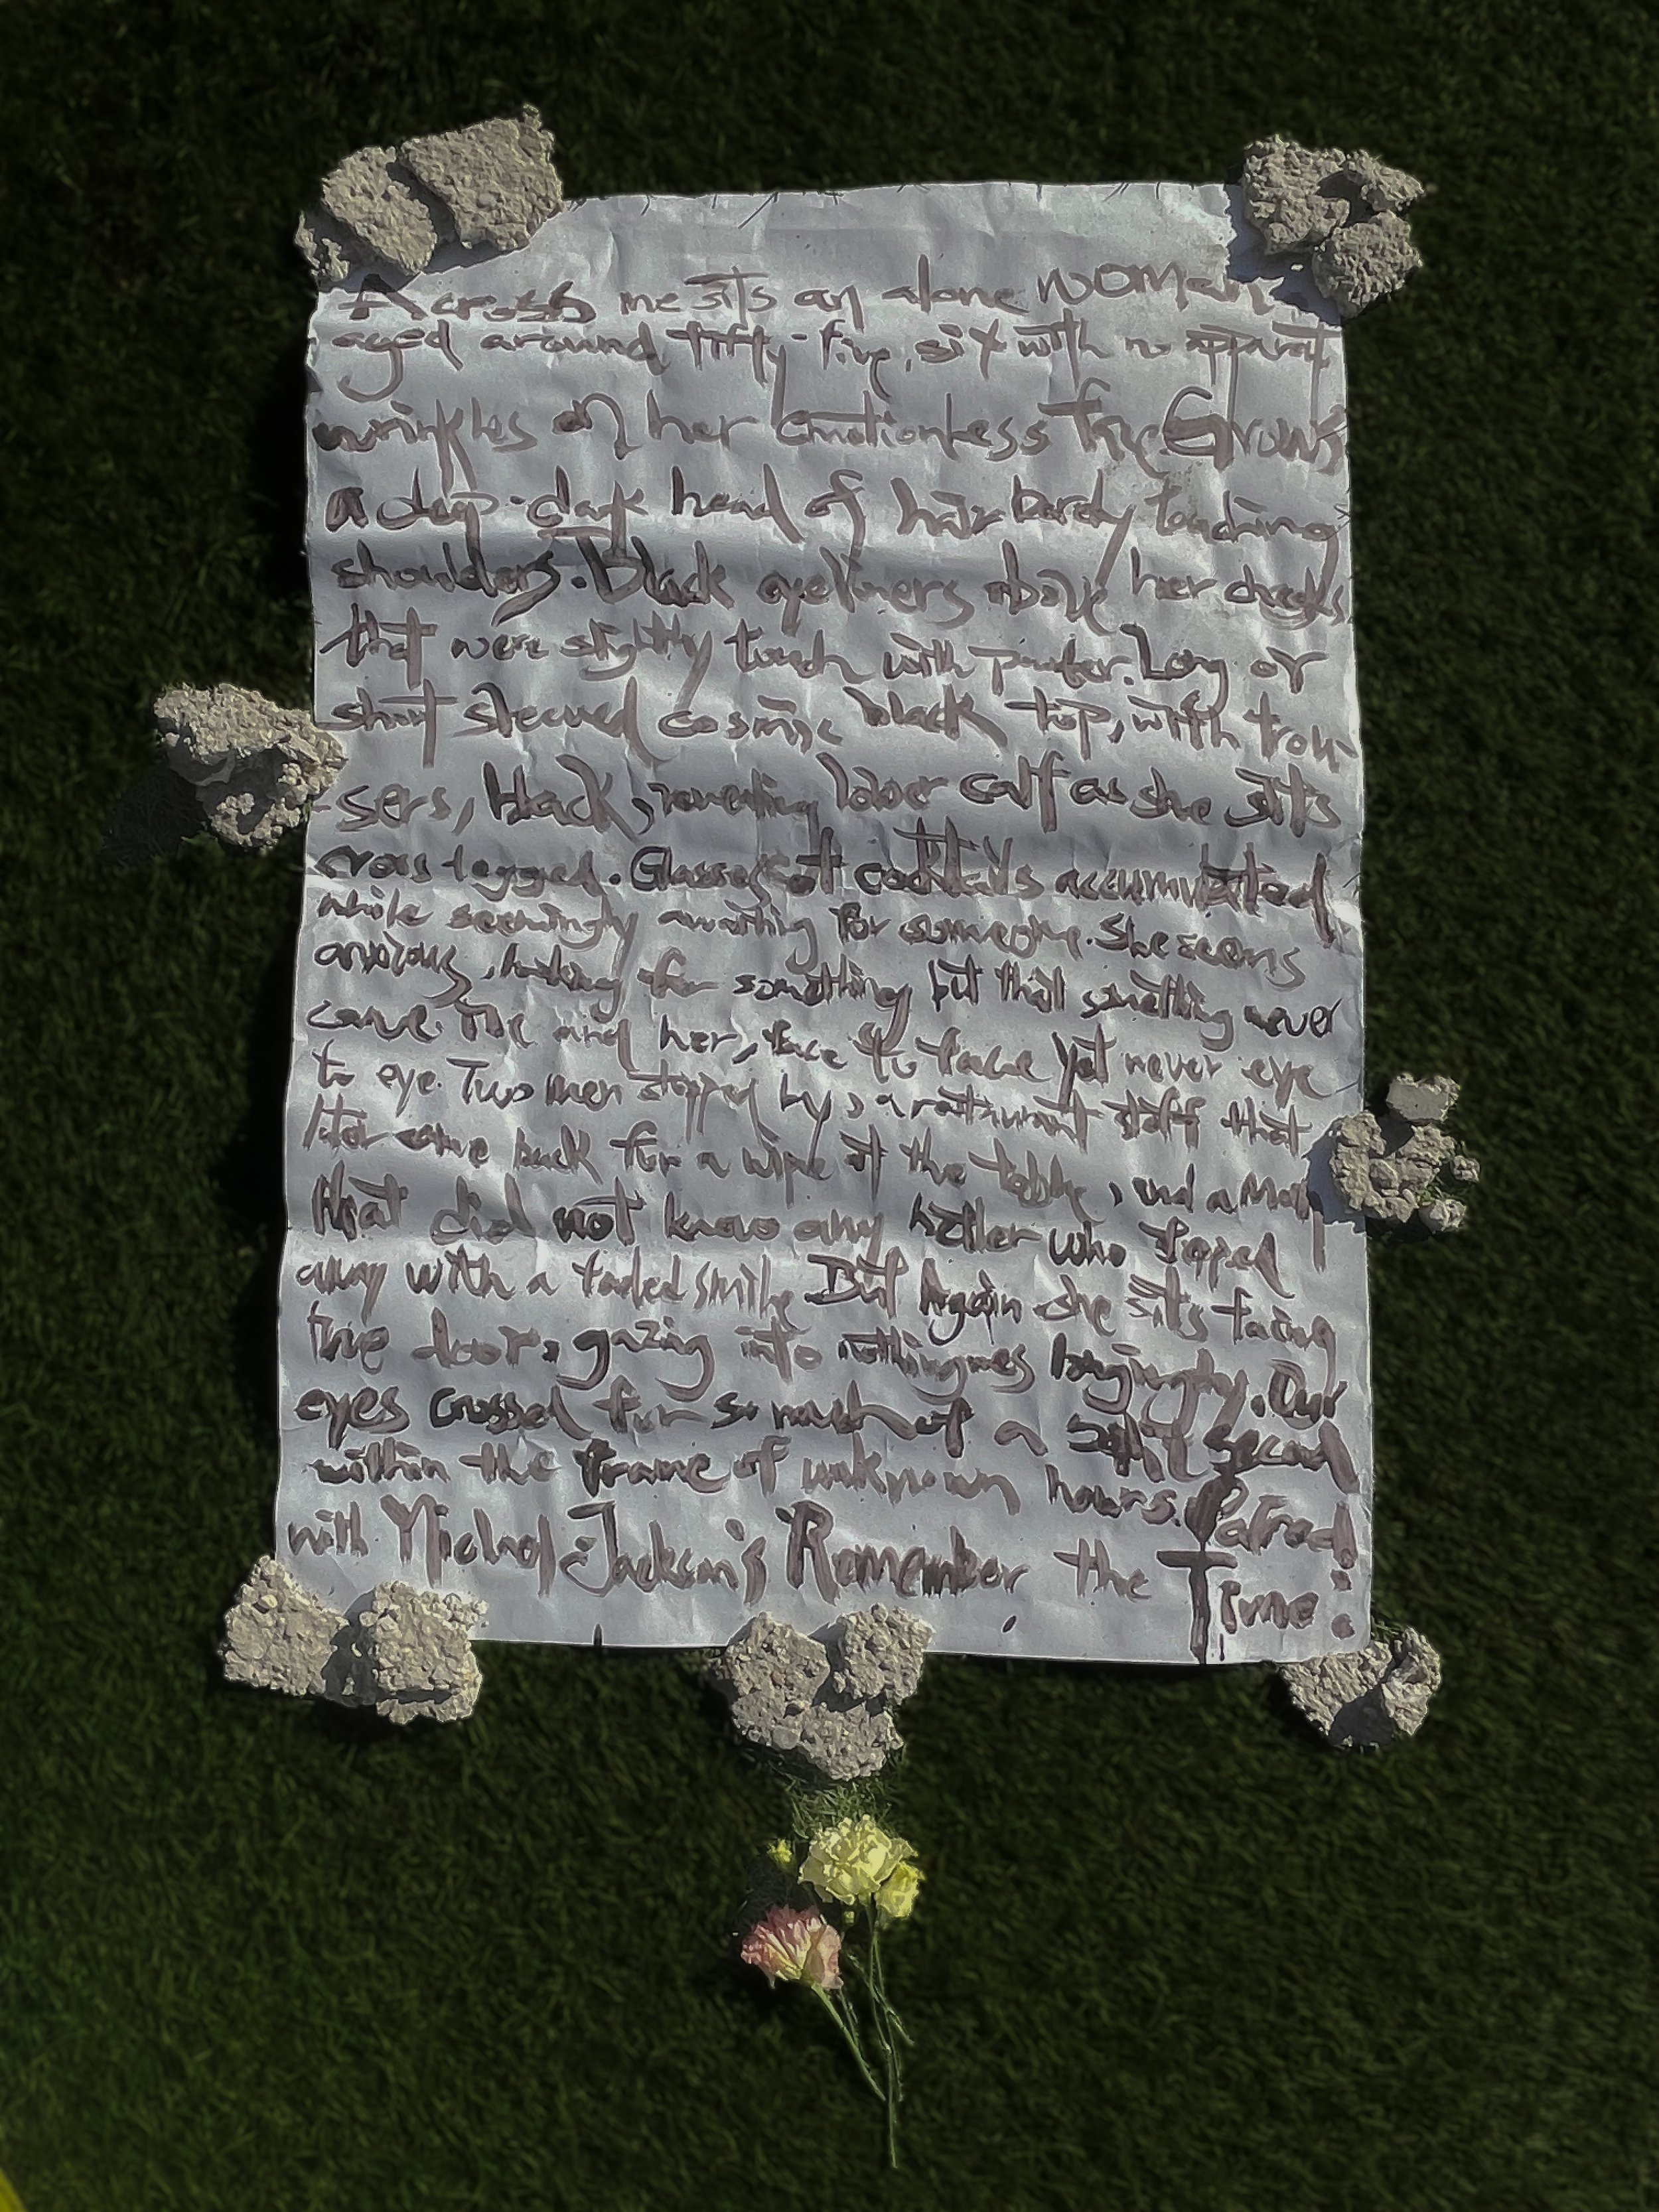 Across me sits an alone woman
aged around fifty-five, six with no apparent
wrinkles on her emotionless face. Grows
a deep-dark head of hair barely touching
shoulders. Black eyeliners above her cheeks
that were slightly touch with powder. Long or
short sleeved cosmic black top, with trou
-sers, black, revealing lower calf as she sits
cross legged. Glasses of cocktails accumulated
while seemingly awaiting for someone. She seems
anxious, looking for something but that something never
came. Me and her, face to face yet never eye
to eye. Two men stopped by, a restaurant staff that
later came back for a wipe of the table, and a man
that did not know any better who
away with a faded smile. But Again she sits facing
the door, gazing into nothingness longingly. Our
eyes crossed for so much of a split second
within the frame of unknown hours. Paired
with Michael Jackson's Remember the Time.